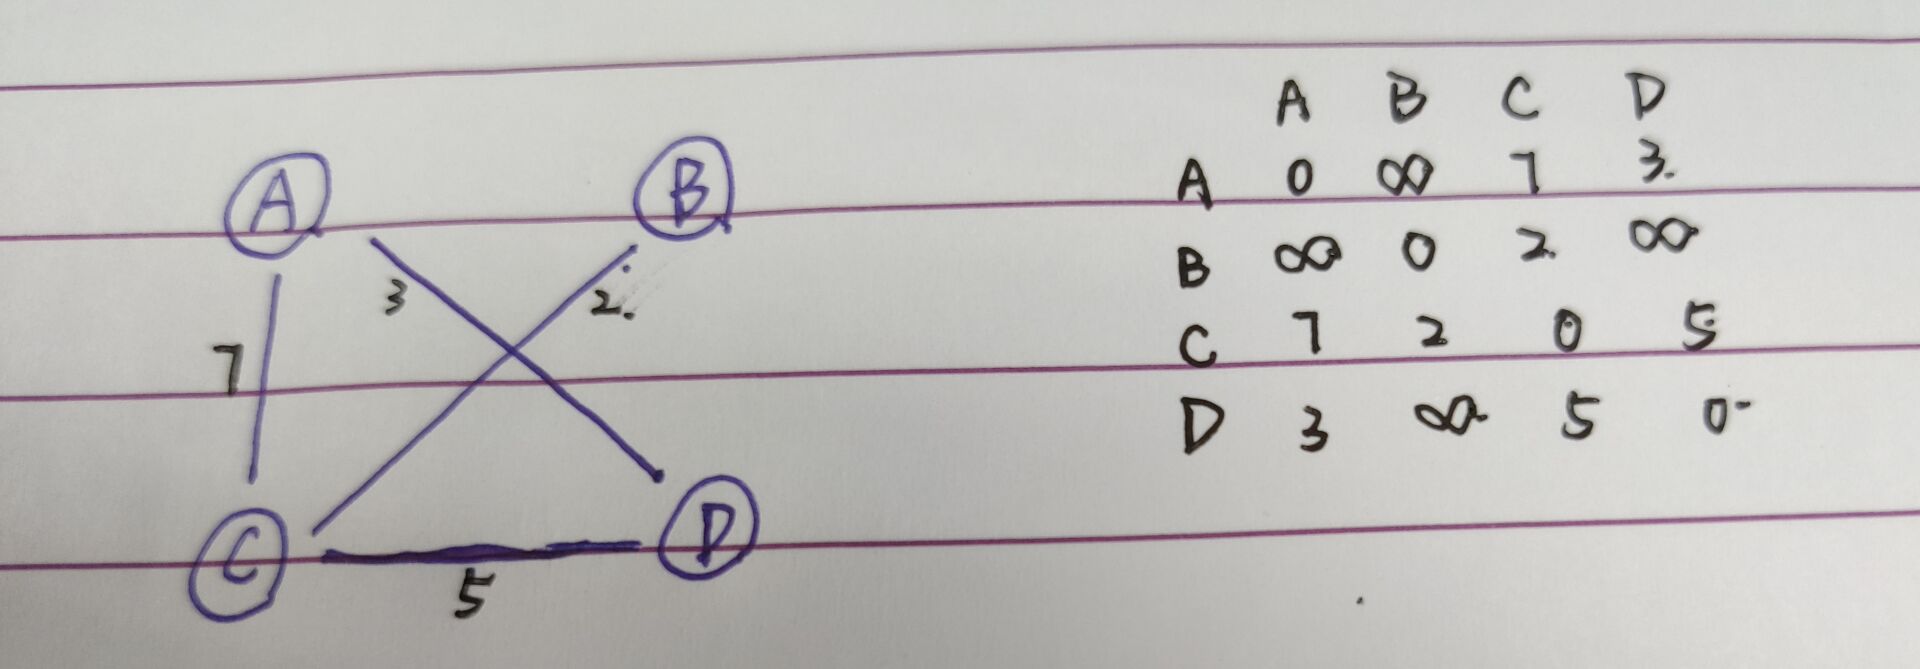 A B
3 2.
7
C D
5
A B C D
A 0 ∞ 7 3.
B ∞ 0 2. ∞
C 7 2 0 5
D 3 ∞ 5 0